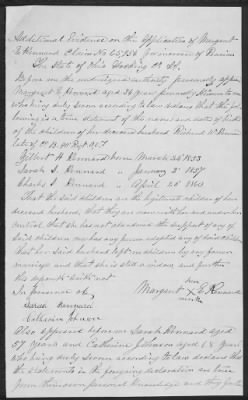 Additional Evidence on the Application of Margaret
E Kennard Claim No 65,756 Commissioner of Pensions
The State of Ohio Hocking Co SS.
Before me the undersigned authority personally appeared
Margaret E Kennard aged 36 years personally known to me
who being duly sworn according to law declares that the fol-
lowing is a true statement of the names and dates of births
of the children of her deceased husband Richard W Kennard
late of Co B. Regt
Gilbert H Kennard born March 25 1853
Sarah S. Kennard " January 2 1857
Charles S Kennard " April 25 1860
That the said children are the legitimate children of her
deceased husband, that they are now with her and under her
control. That she has not abandoned the support of any of
said children
That her said husband left no children by any former
marriage and that she is still a widow and further
this deponent saith not.
In presence of
Margaret X E Kennard
her
mark
Sarah Kennard
Catharine Johnson
Also appeared before me Sarah Kennard aged
57 years and Catharine Johnson aged years
who being duly sworn according to law declare that
the statements in the foregoing declaration are true
from their own personal knowledge and they further